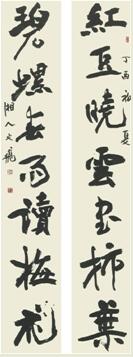 紅豆曉雲書柿葉
丁酉初夏
碧螺春雨讀梅花
湘人文